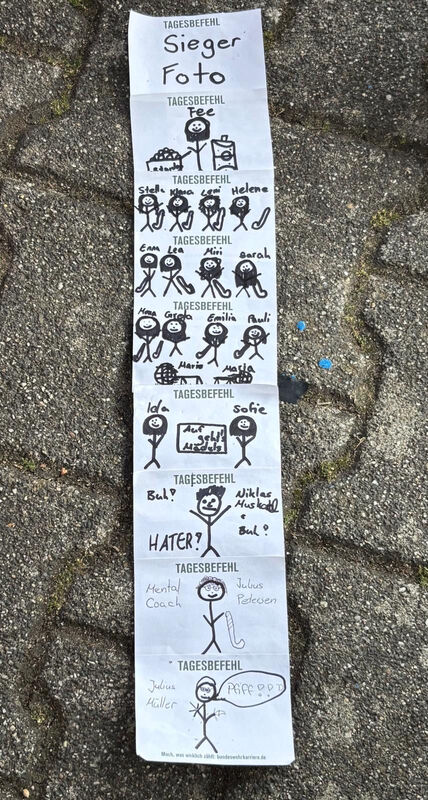 TAGESBEFEHL
Sieger
Foto
TAGESBEFEHL
Fee
TAGESBEFEHL
Stella Leni Helene
TAGESBEFEHL
Emma Lea Miri Sarah
TAGESBEFEHL
Greta Emilia Pauli
Marie Marla
TAGESBEFEHL
Ida Sofie
Auf
geht's
Mädels
TAGESBEFEHL
Buh? Niklas
HATER? Buh?
TAGESBEFEHL
Mental Julius
Coach Petersen
TAGESBEFEHL
Julius
Müller
Mach, was wirklich zählt: bundeswehrkarriere.de